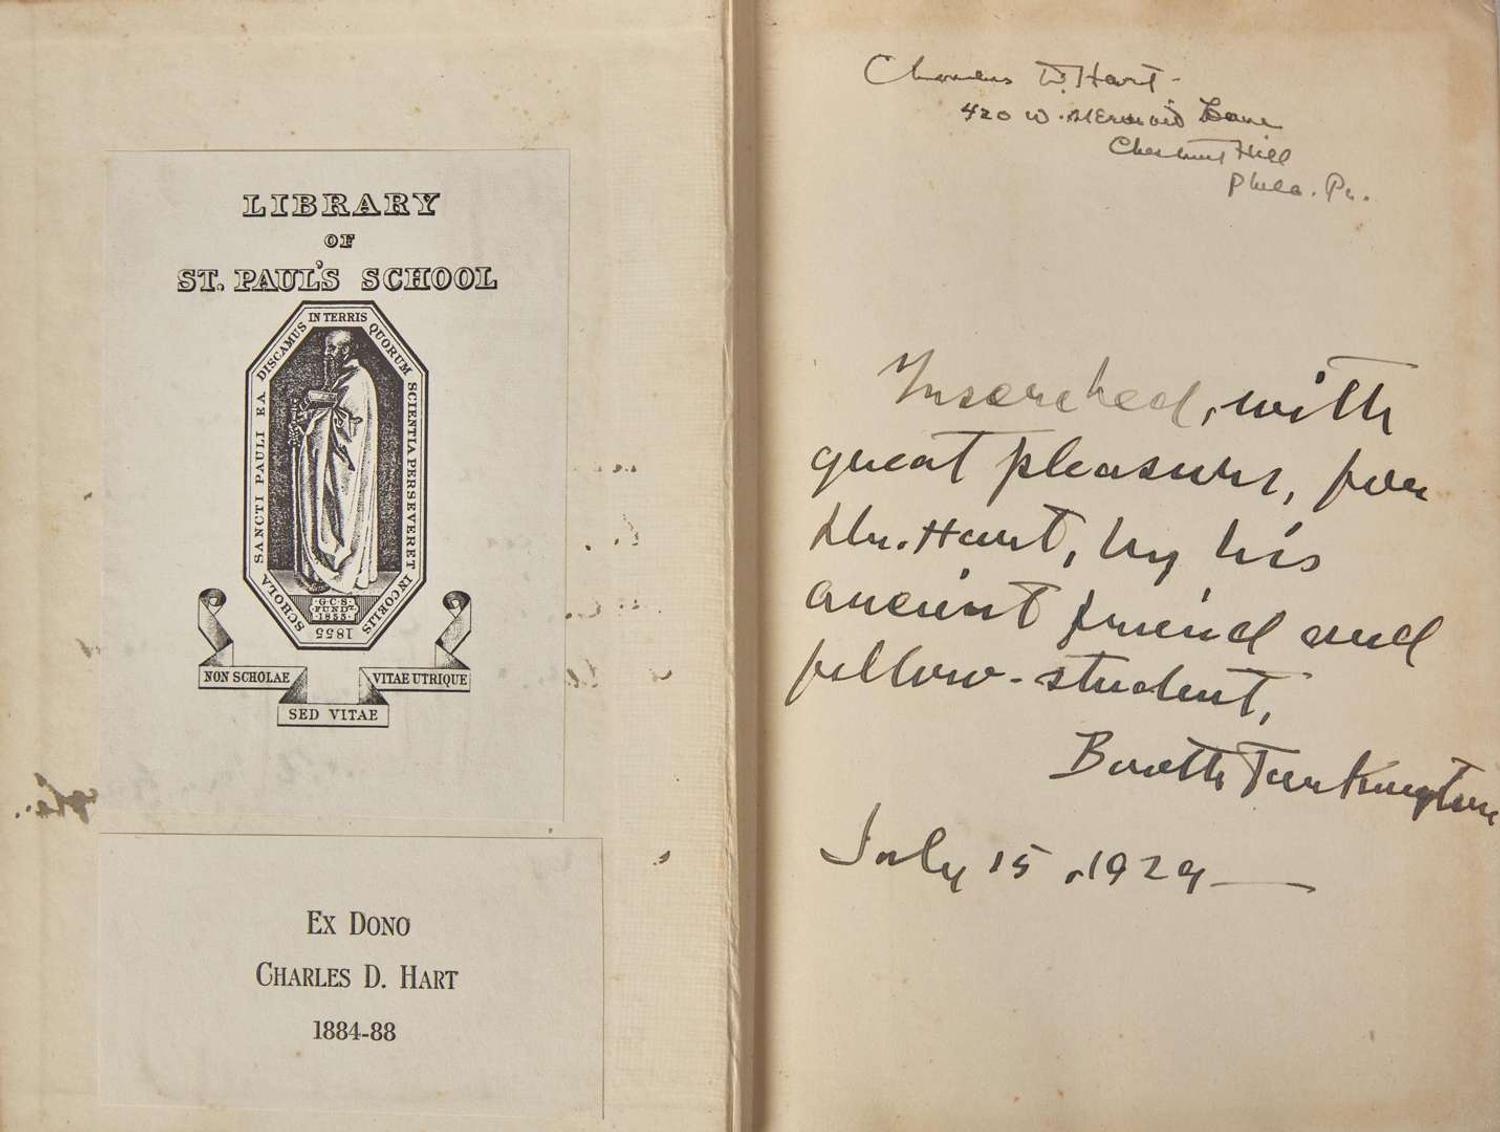 LIBRARY
OF
ST. PAUL'S SCHOOL
SCHOLA SANCTI PAULI EA DISCAMUS IN TERRIS QUORUM SCIENTIA PERSEVERET IN COELIS
G.C.S.
FUNDT
1855
1855
NON SCHOLAE
SED VITAE
VITAE UTRIQUE
EX DONO
CHARLES D. HART
1884-88
Charles D. Hart
420 W. Mermaid Lane
Chestnut Hill
Phila. Pa.
Inscribed, with
great pleasure, for
Mr. Hart, by his
ancient friend and
fellow-student,
Booth Tarkington
July 15, 1929